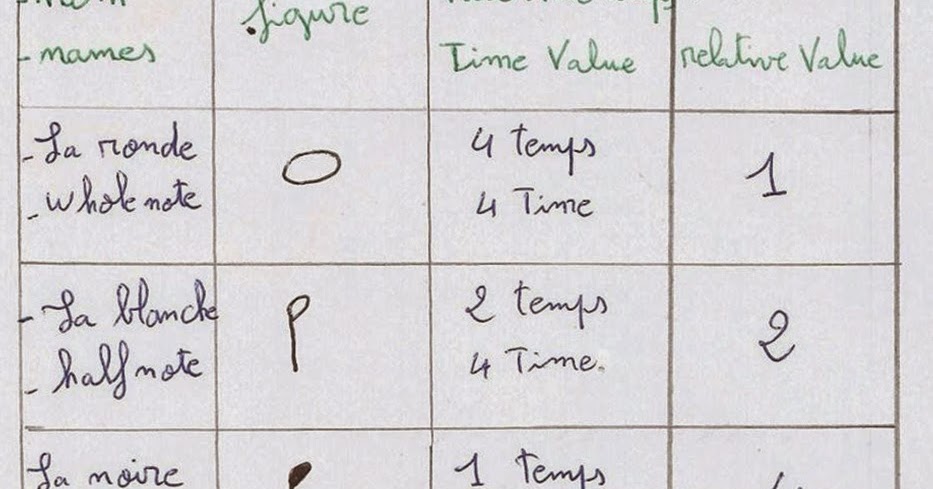 - names
figure
Time Value
relative Value
- La ronde
- whole note
4 temps
4 Time
1
- La blanche
- half note
2 temps
4 Time.
2
La noire
1 temps